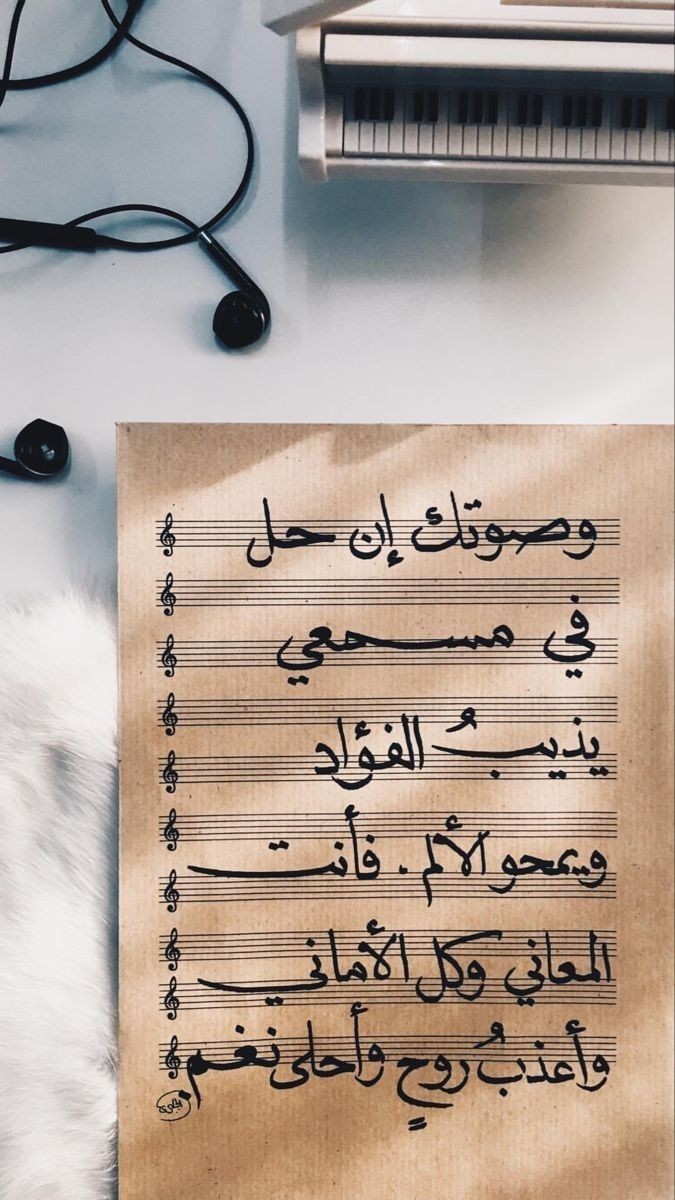 وصوتك إن حل
في مسمعي
يذيبُ الفؤاد
ويمحو الألم . فأنت
المعاني وكل الأماني
وأعذبُ روحٍ وأحلى نغم